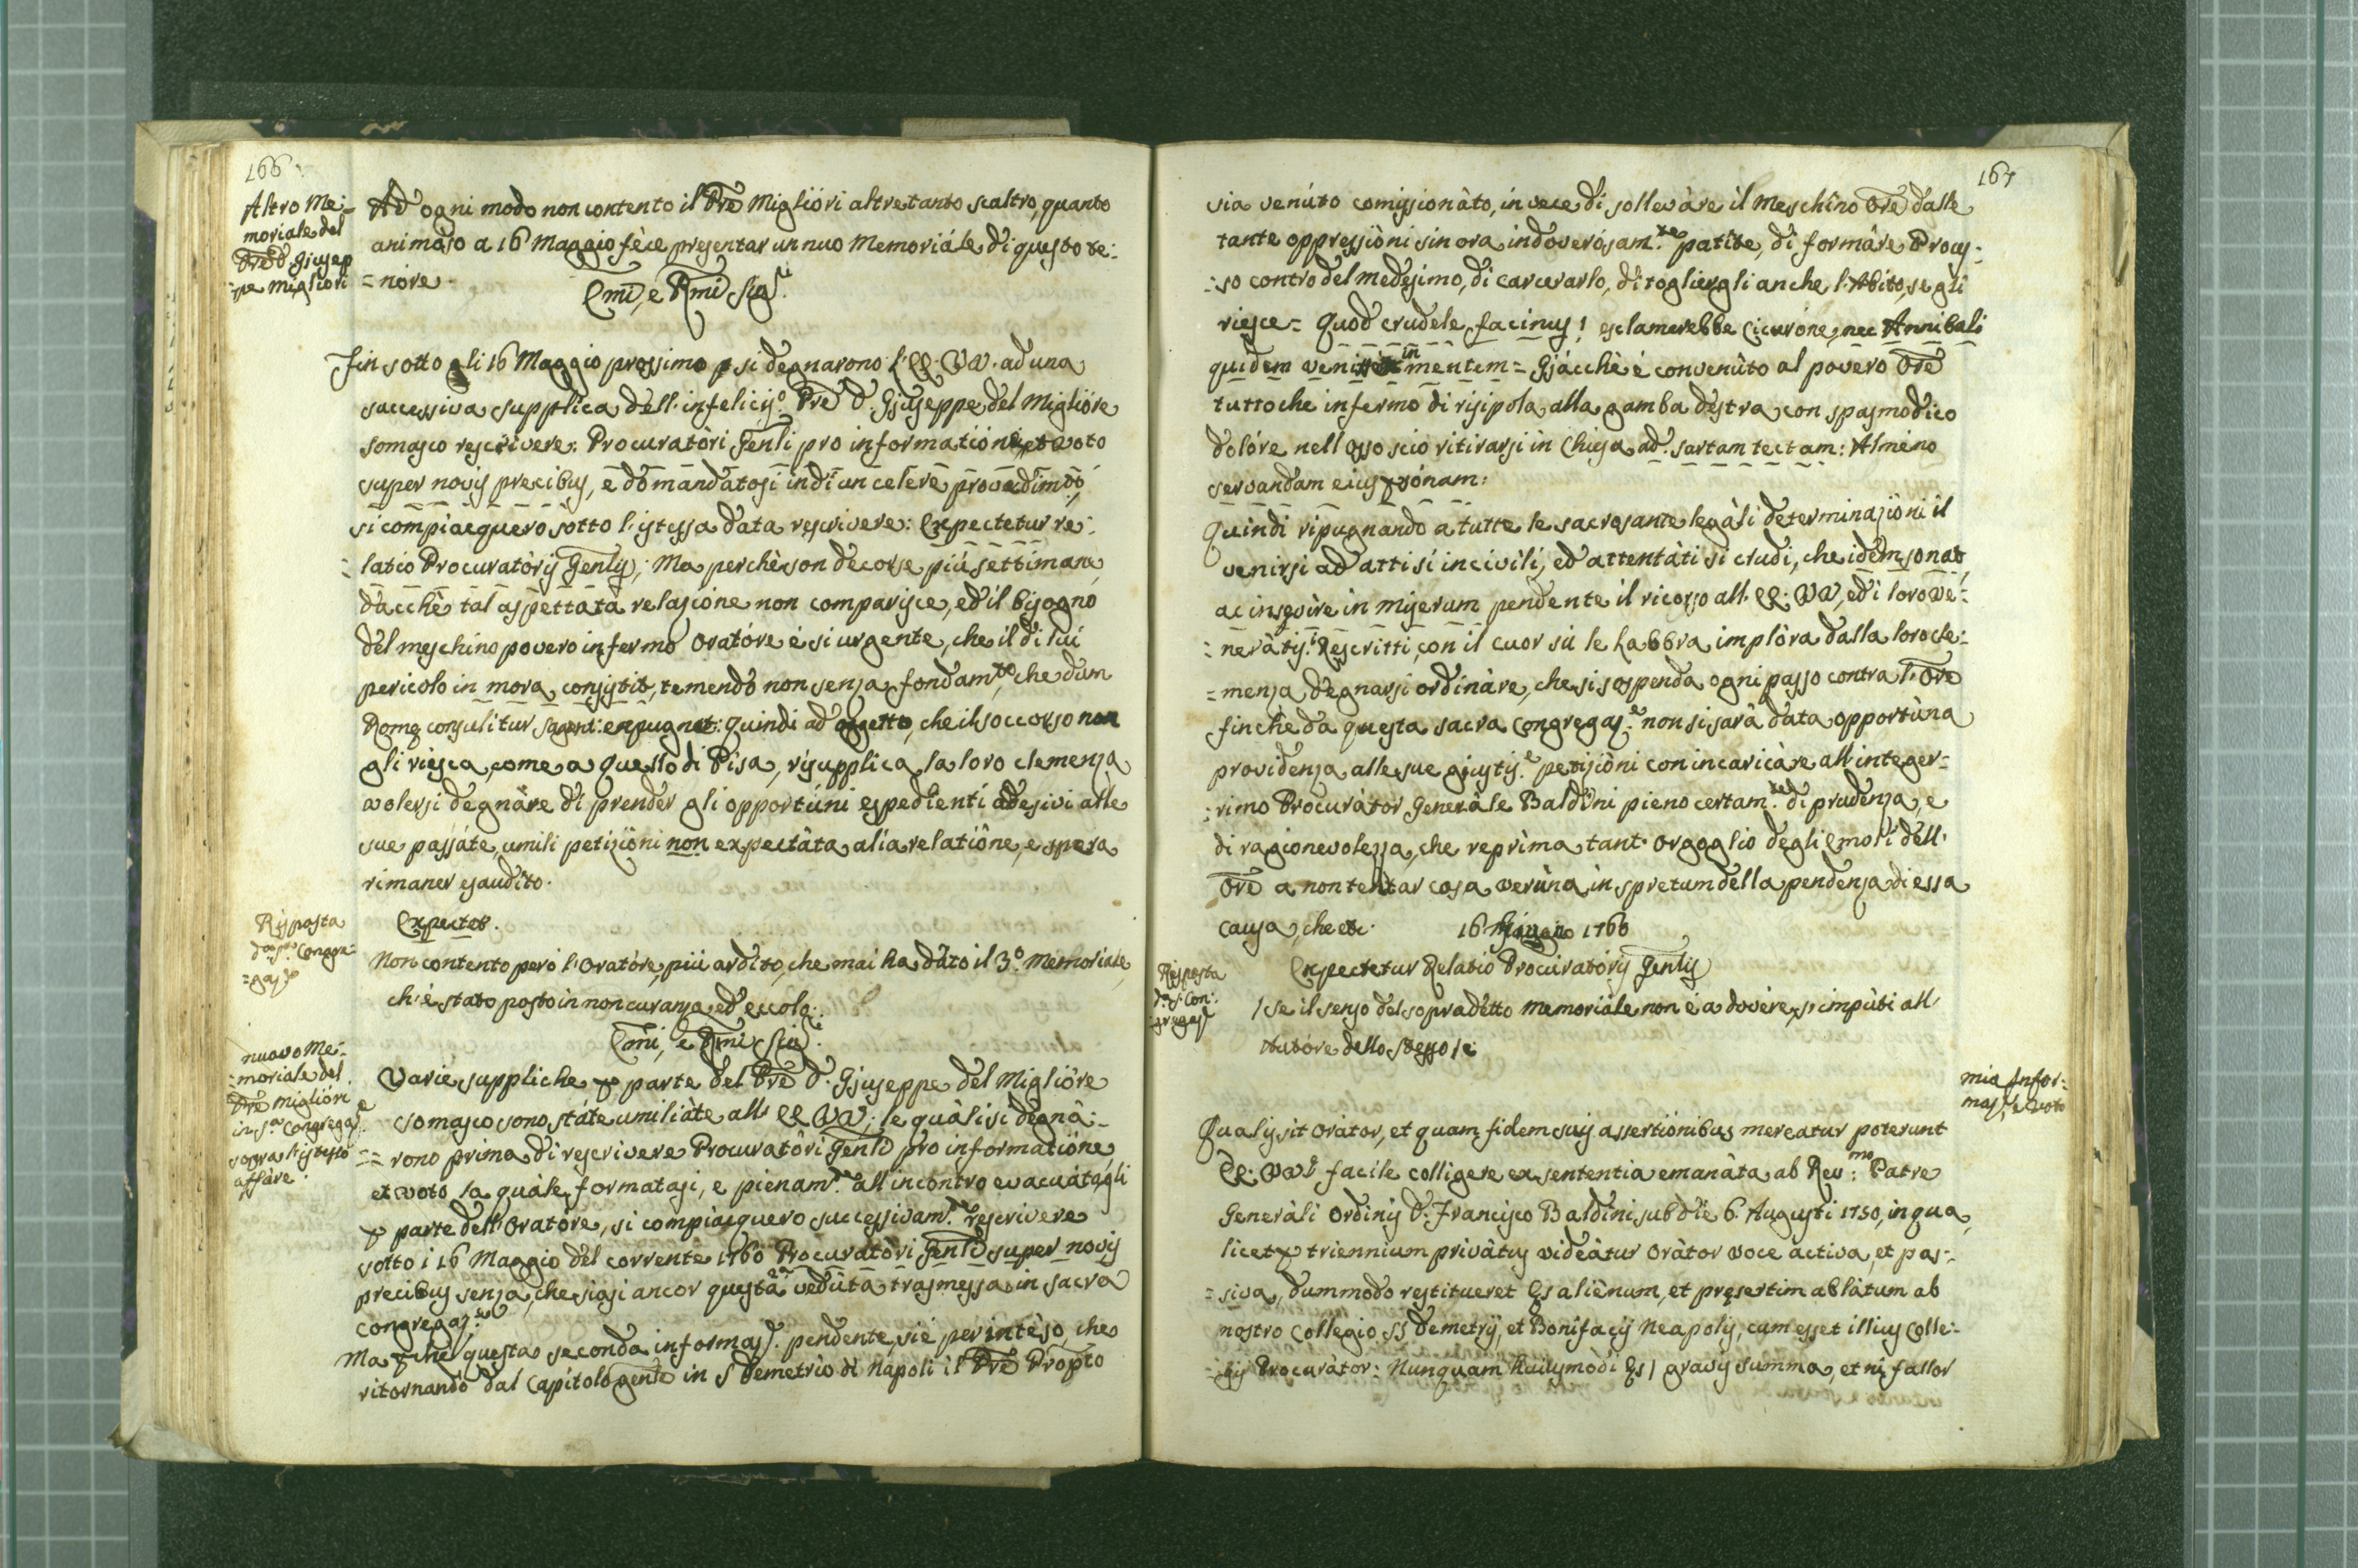 166.
Altro Me:
moriale del
Pre D. Giusep
=pe Migliori
Ad ogni modo non contento il Pre Miglióri altretanto scaltro, quanto
animòso a 16 Maggio féce presentar un nuo Memoriále di questo te:
=nóre.
Emi, e Rmi Sig.ri
Fin sotto gli 16 Maggio prossimo p si degnarono l'EE. VV. ad una
successiva supplica dell'infelicis.o Pre D. Giuseppe del Miglióre
somasco rescrivere: Procuratòri Genli pro informatióne, et voto
super novis precibus, e domandatosi indi un celere provedim.to,
si compiacquero sotto l'istessa data rescrivere: Expectetur re:
=latio Procuratòris Genlis; Ma perchè son decorse piú settimane,
dacchè tal aspettata relazione non comparisce, ed il bisogno
del meschino povero infermo Oratóre é si urgente, che il di lui
pericolo in mora consistit, temendo non senza fondam.to, che dum
Romę consulitur Sagunt: expugnat: quindi ad oggetto, che il soccorso non
gli riesca, come a quello di Pisa, risupplica la loro clemenza
volersi degnàre di prender gli opportúni espedienti adesivi alle
sue passáte umili petizióni non expectâta alia relatiône, e spera
rimaner esaudito.
Risposta
d.a S.a Congre:
=gaz.e
Expectet.
Non contento peró l'Oratóre, più ardito, che mai ha dato il 3.o memoriale,
ch'é stato posto in noncuranza, ed eccolo:
Emi, e Rmi Sig.ri
nuovo Me:
=moriale del
Pre Miglióri
in S.a Congregaz.e
sopra l'istesso
affàre.
Varie suppliche p parte del Pre D. Giuseppe del Miglióre
somasco sono státe umiliàte all' EE VV; le quàli si degnâ:
=rono prima di rescrivere Procuratôri Genli pro informatióne,
et voto la quále formatasi, e pienam.te all'incontro evacuátagli
p parte dell'Oratóre, si compiacquero successivam.te rescrivere
sotto i 16 Maggio del corrente 1760 Procuratòri Genli super novis
precibus senza, che siasi ancor questa vedúta trasmessa in sacra
Congregaz.ne
Ma pche questa seconda informaz.e pendente, si é per intéso, che
ritornando dal Capitolo gente in S Demetrio di Napoli il Pre Propto
167
sia venúto comissionàto, in vece di sollevàre il Meschîno Ore dalle
tante oppressiôni sin ora indoverósam.te patîte, di formàre Proces:
=so contro del medesimo, di carcerarlo, di togliergli anche l'Abito, se gli
riesce = Quod crudele facinus! esclamerebbe Ciceróne, nec Annibali
quidem venisset in mentem = Giácchè é convenùto al povero Ore
tuttoche infermo di risipola alla gamba destra con spasmodico
dolóre nell'osso scio ritirarsi in Chiesa ad sartam tectam: Alméno
servandam eius psónam:
Quindi ripugnando a tutte le sacrosante legàli determinazióni il
venirsi ad atti sí incivili, ed attentàti si crudi, che idem sonat,
ac insęvire in miserum pendente il ricorso all' EE. VV, ed i loro ve:
=neràtis.i Rescritti, con il cuor sù le Labbra implòra dalla loro cle:
=menza degnarsi ordinàre, che si sospenda ogni passo contra l'Ore
finchè da questa sacra Congregaz.e non si sarâ data opportúna
providenza alle sue giustis.e petiziòni con incaricàre all'integer=
:rimo Procurátor Generâle Baldini pieno certam.te di prudenza, e
di ragionevolezza, che reprìma tant' orgoglio degli Emoli dell'
Ore a non tentar cosa verúna in spretum della pendenza di essa
causa, che etc. 16 Giugno 1760
Risposta
d.a S. Con:
gregaz.e
Expectetur Relatio Procúratòris Genlis
/ se il senso del sopradetto memoriále non é a dovére, s'impùti all'
Autóre dello stesso /:
mia Infor:
maz.e e Voto
Qualis sit Orátor, et quam fidem suis assertiónibus mereatur poterunt
EE. VV.ę facile colligere ex sententia emanâta ab Rev:mo Patre
Generàli Ordinis D. Francisco Baldini sub die 6. Augusti 1750, in qua,
licet p triennium privâtus videàtur Oràtor voce àctiva, et pas:
=siva, dummodo restitueret Ęs aliènum, et pręsertim ablàtum ab
nostro Collegio SS Demetrij, et Bonifacij Neapolis, cum esset illius Colle:
=gij Procuràtor: Nunquam huiusmòdi Ęs / gravis summa, et ni fallor